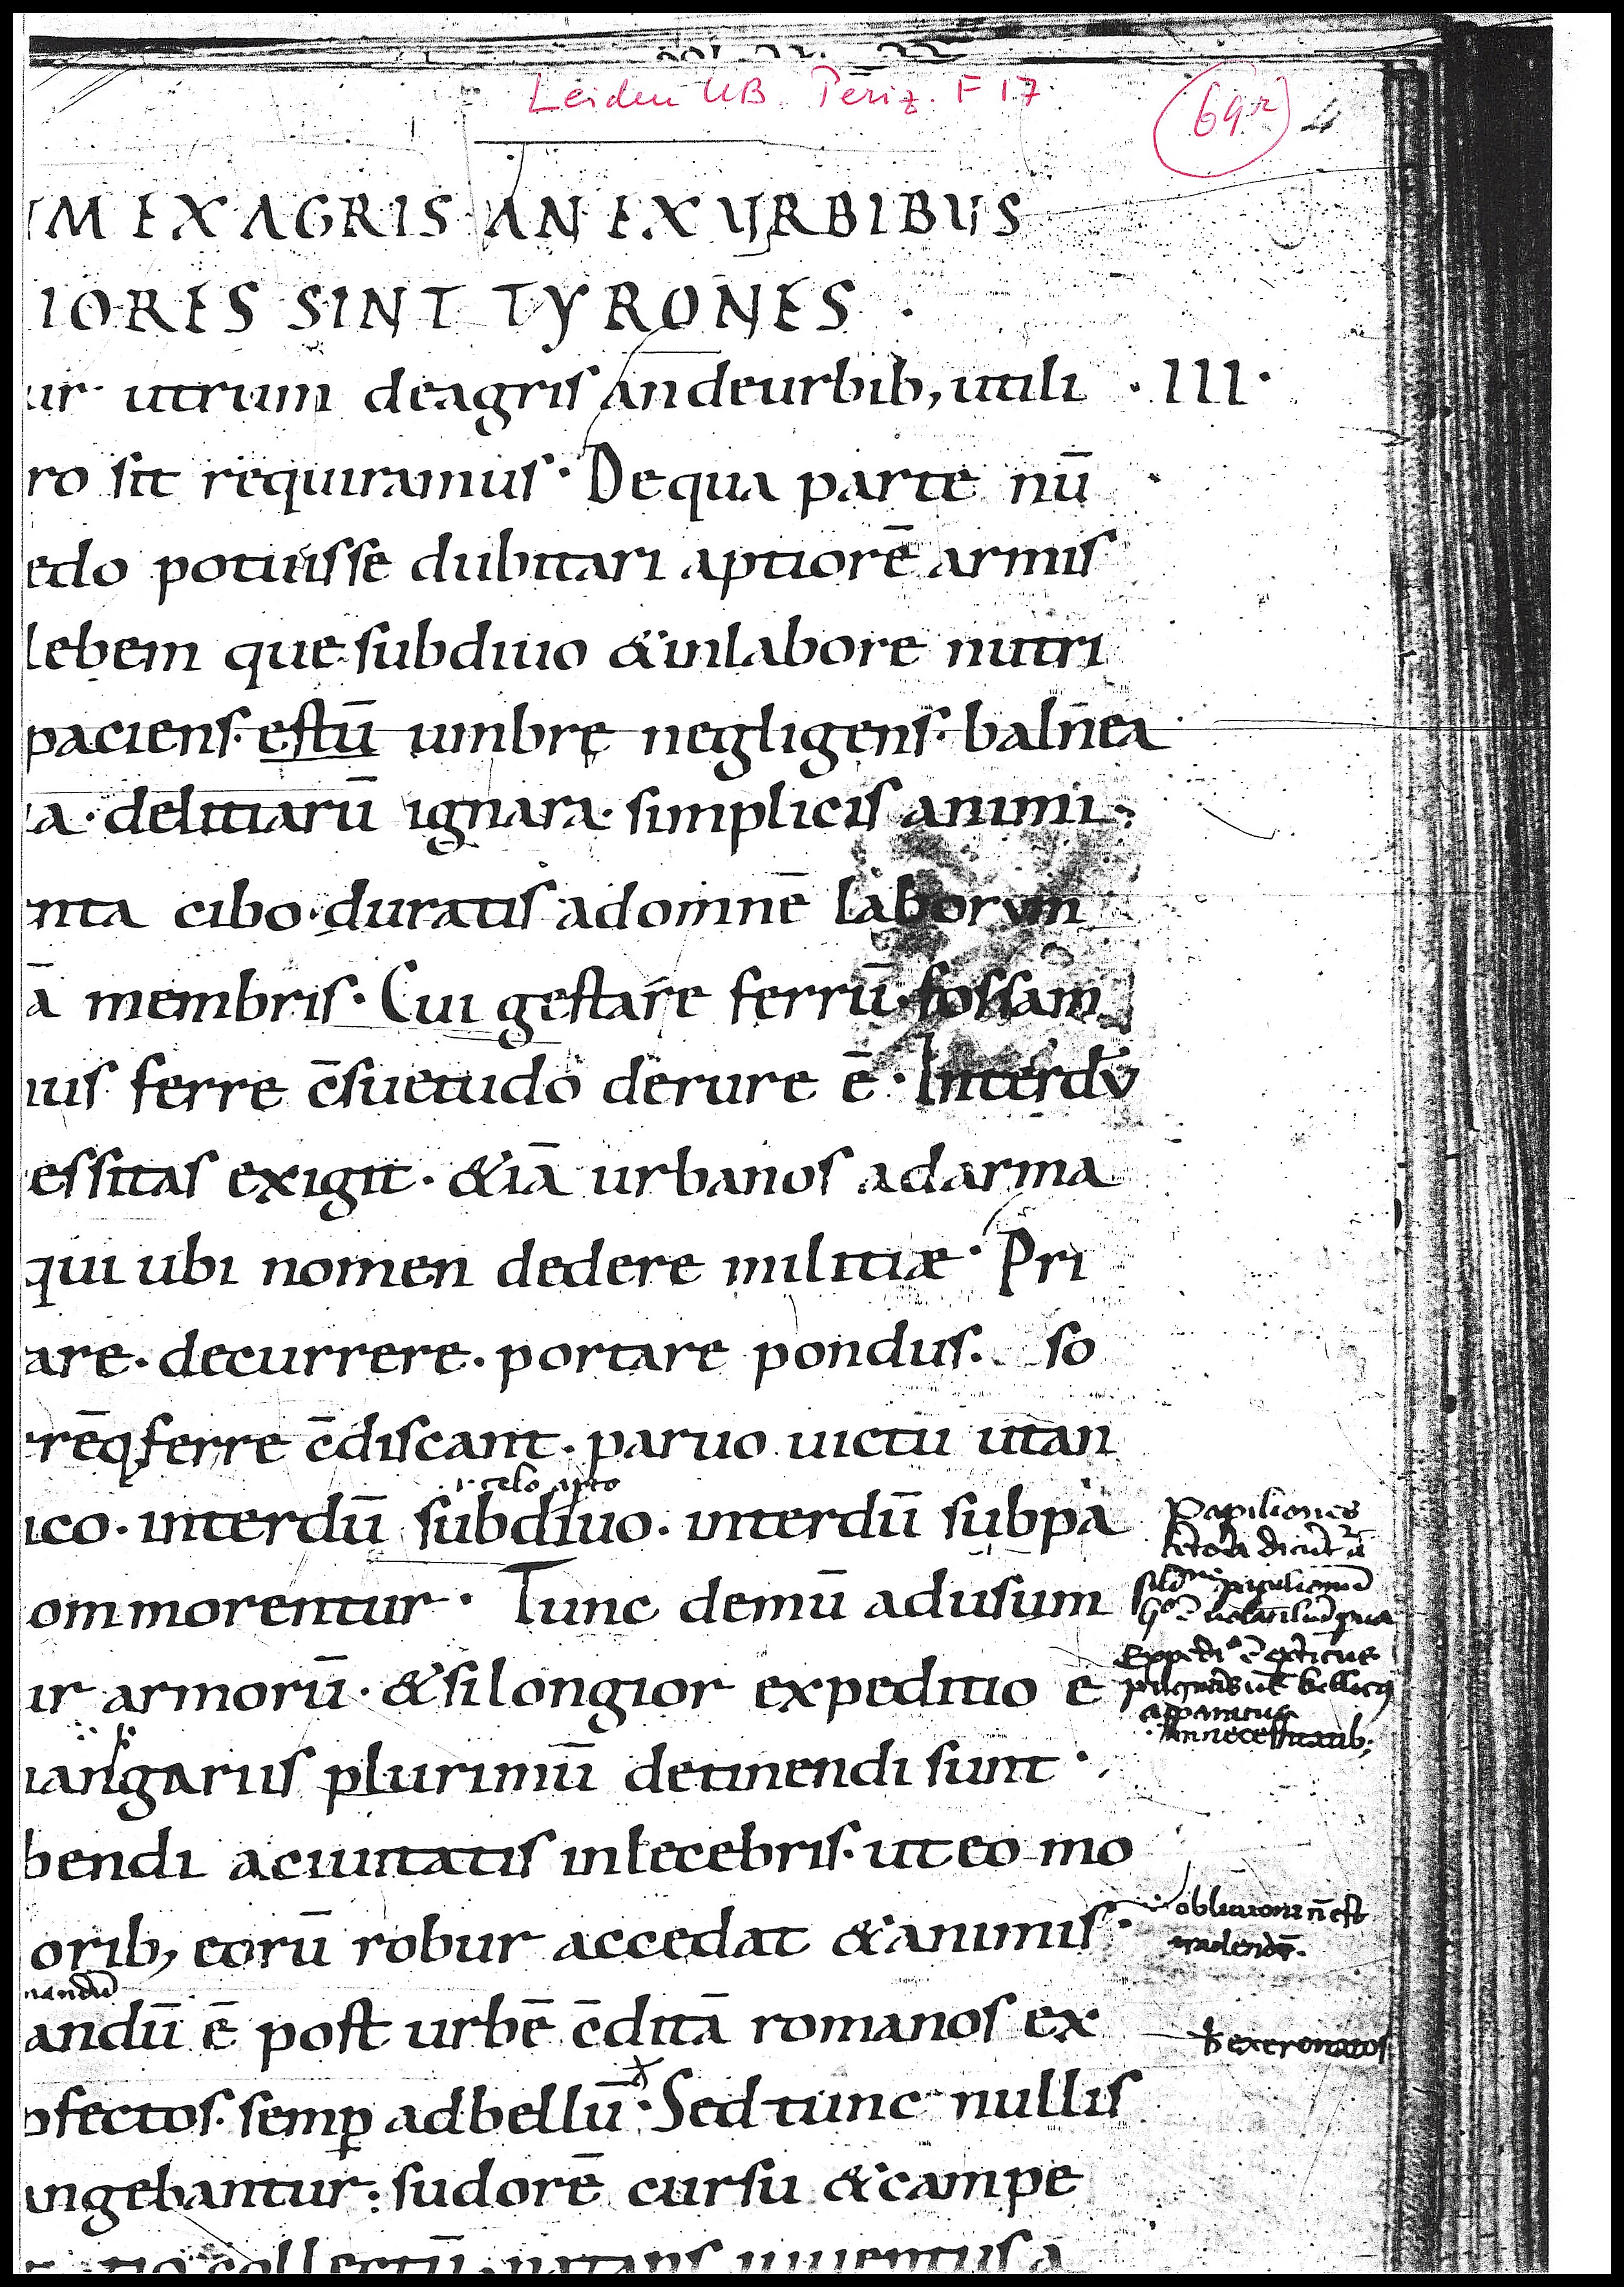 Leiden UB. Periz. F 17
69r
4
IM EX AGRIS AN EX URBIBUS
IORES SINT TYRONES ·
ur· utrum deagris andeurbib, utili · III ·
ro sit requiramus· De qua parte nū
edo potuisse dubitari aptiorē armis
lebem que subdiuo &inlabore nutri
paciens· estū umbre negligens· balnea
a· delitiarū ignara· simplicis animi·
nta cibo· duratis adomnē laborum
ā membris· Cui gestare ferrū· fossam
uis ferre c̄suetudo derure ē· Interdū
essitas exigit· &iā urbanos adarma
qui ubi nomen dedere militiæ· Pri
are· decurrere· portare pondus· so
rēq ferre c̄discant· paruo uictu utan
ico· interdū subdiuo· interdū subpa
Papiliones
ommorentur· Tunc demū adusum
ir armorū· &silongior expeditio ē
apparatus
iangariis plurimū detinendi sunt·
bendi aciuitatis inlecebris· ut eo mo
orib, eorū robur accedat &animis·
obliuioni n̄ est
nandū
andū ē post urbē c̄ditā romanos ex
ofectos· semꝑ adbellū· Sed tunc nullis
ungebantur· sudorē cursu &campe
collectū natans iuuentus a